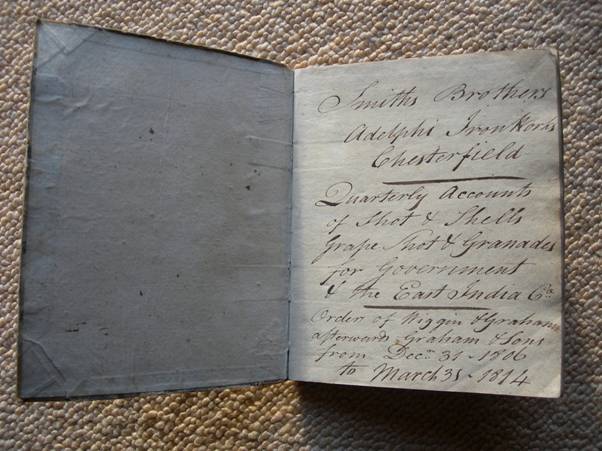 Smiths Brothers
Adelphi Iron Works
Chesterfield
Quarterly Accounts
of Shot & Shells
Grape Shot & Granades
for Government
& the East India Co.
Order of Wiggin & Graham
afterwards Graham & Sons
from Decr. 31 - 1806
to March 31 - 1814